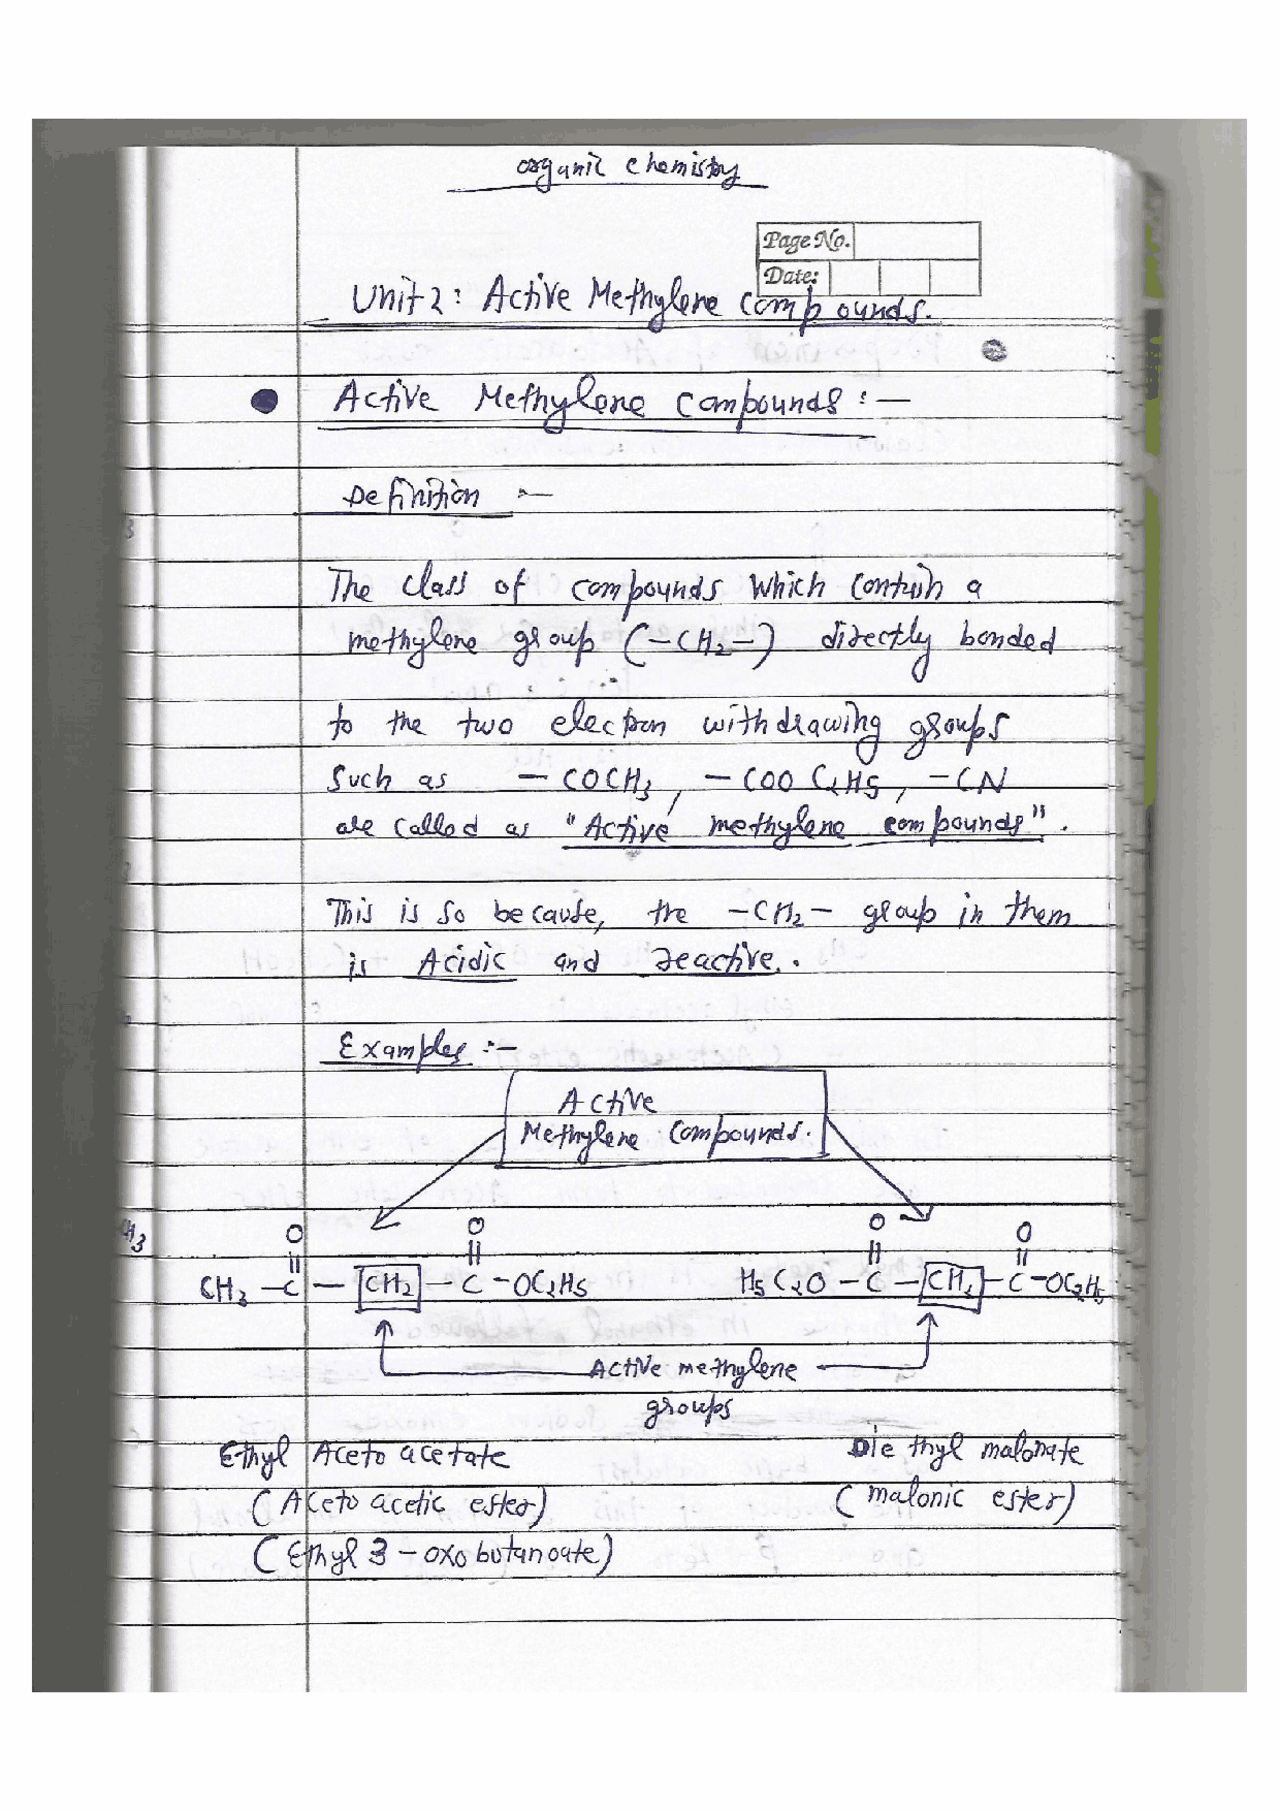 organic chemistry
Page No.
Date:
Unit 2: Active Methylene compounds.
Active Methylene Compounds :—
Definition :—
The class of compounds which contain a
methylene group (-CH₂-) directly bonded
to the two electron withdrawing groups
Such as - COCH₃, - COO C₂H5, -CN
are called as "Active methylene compounds".
This is so because, the -CH₂- group in them
is Acidic and reactive.
Examples :-
Active
Methylene Compounds.
O O O O
CH₃ - C - CH₂ - C - OC₂H5 H5C₂O - C - CH₂ - C - OC₂H5
Active methylene
groups
Ethyl Aceto acetate Diethyl malonate
(Aceto acetic ester) (malonic ester)
(Ethyl 3-oxobutanoate)